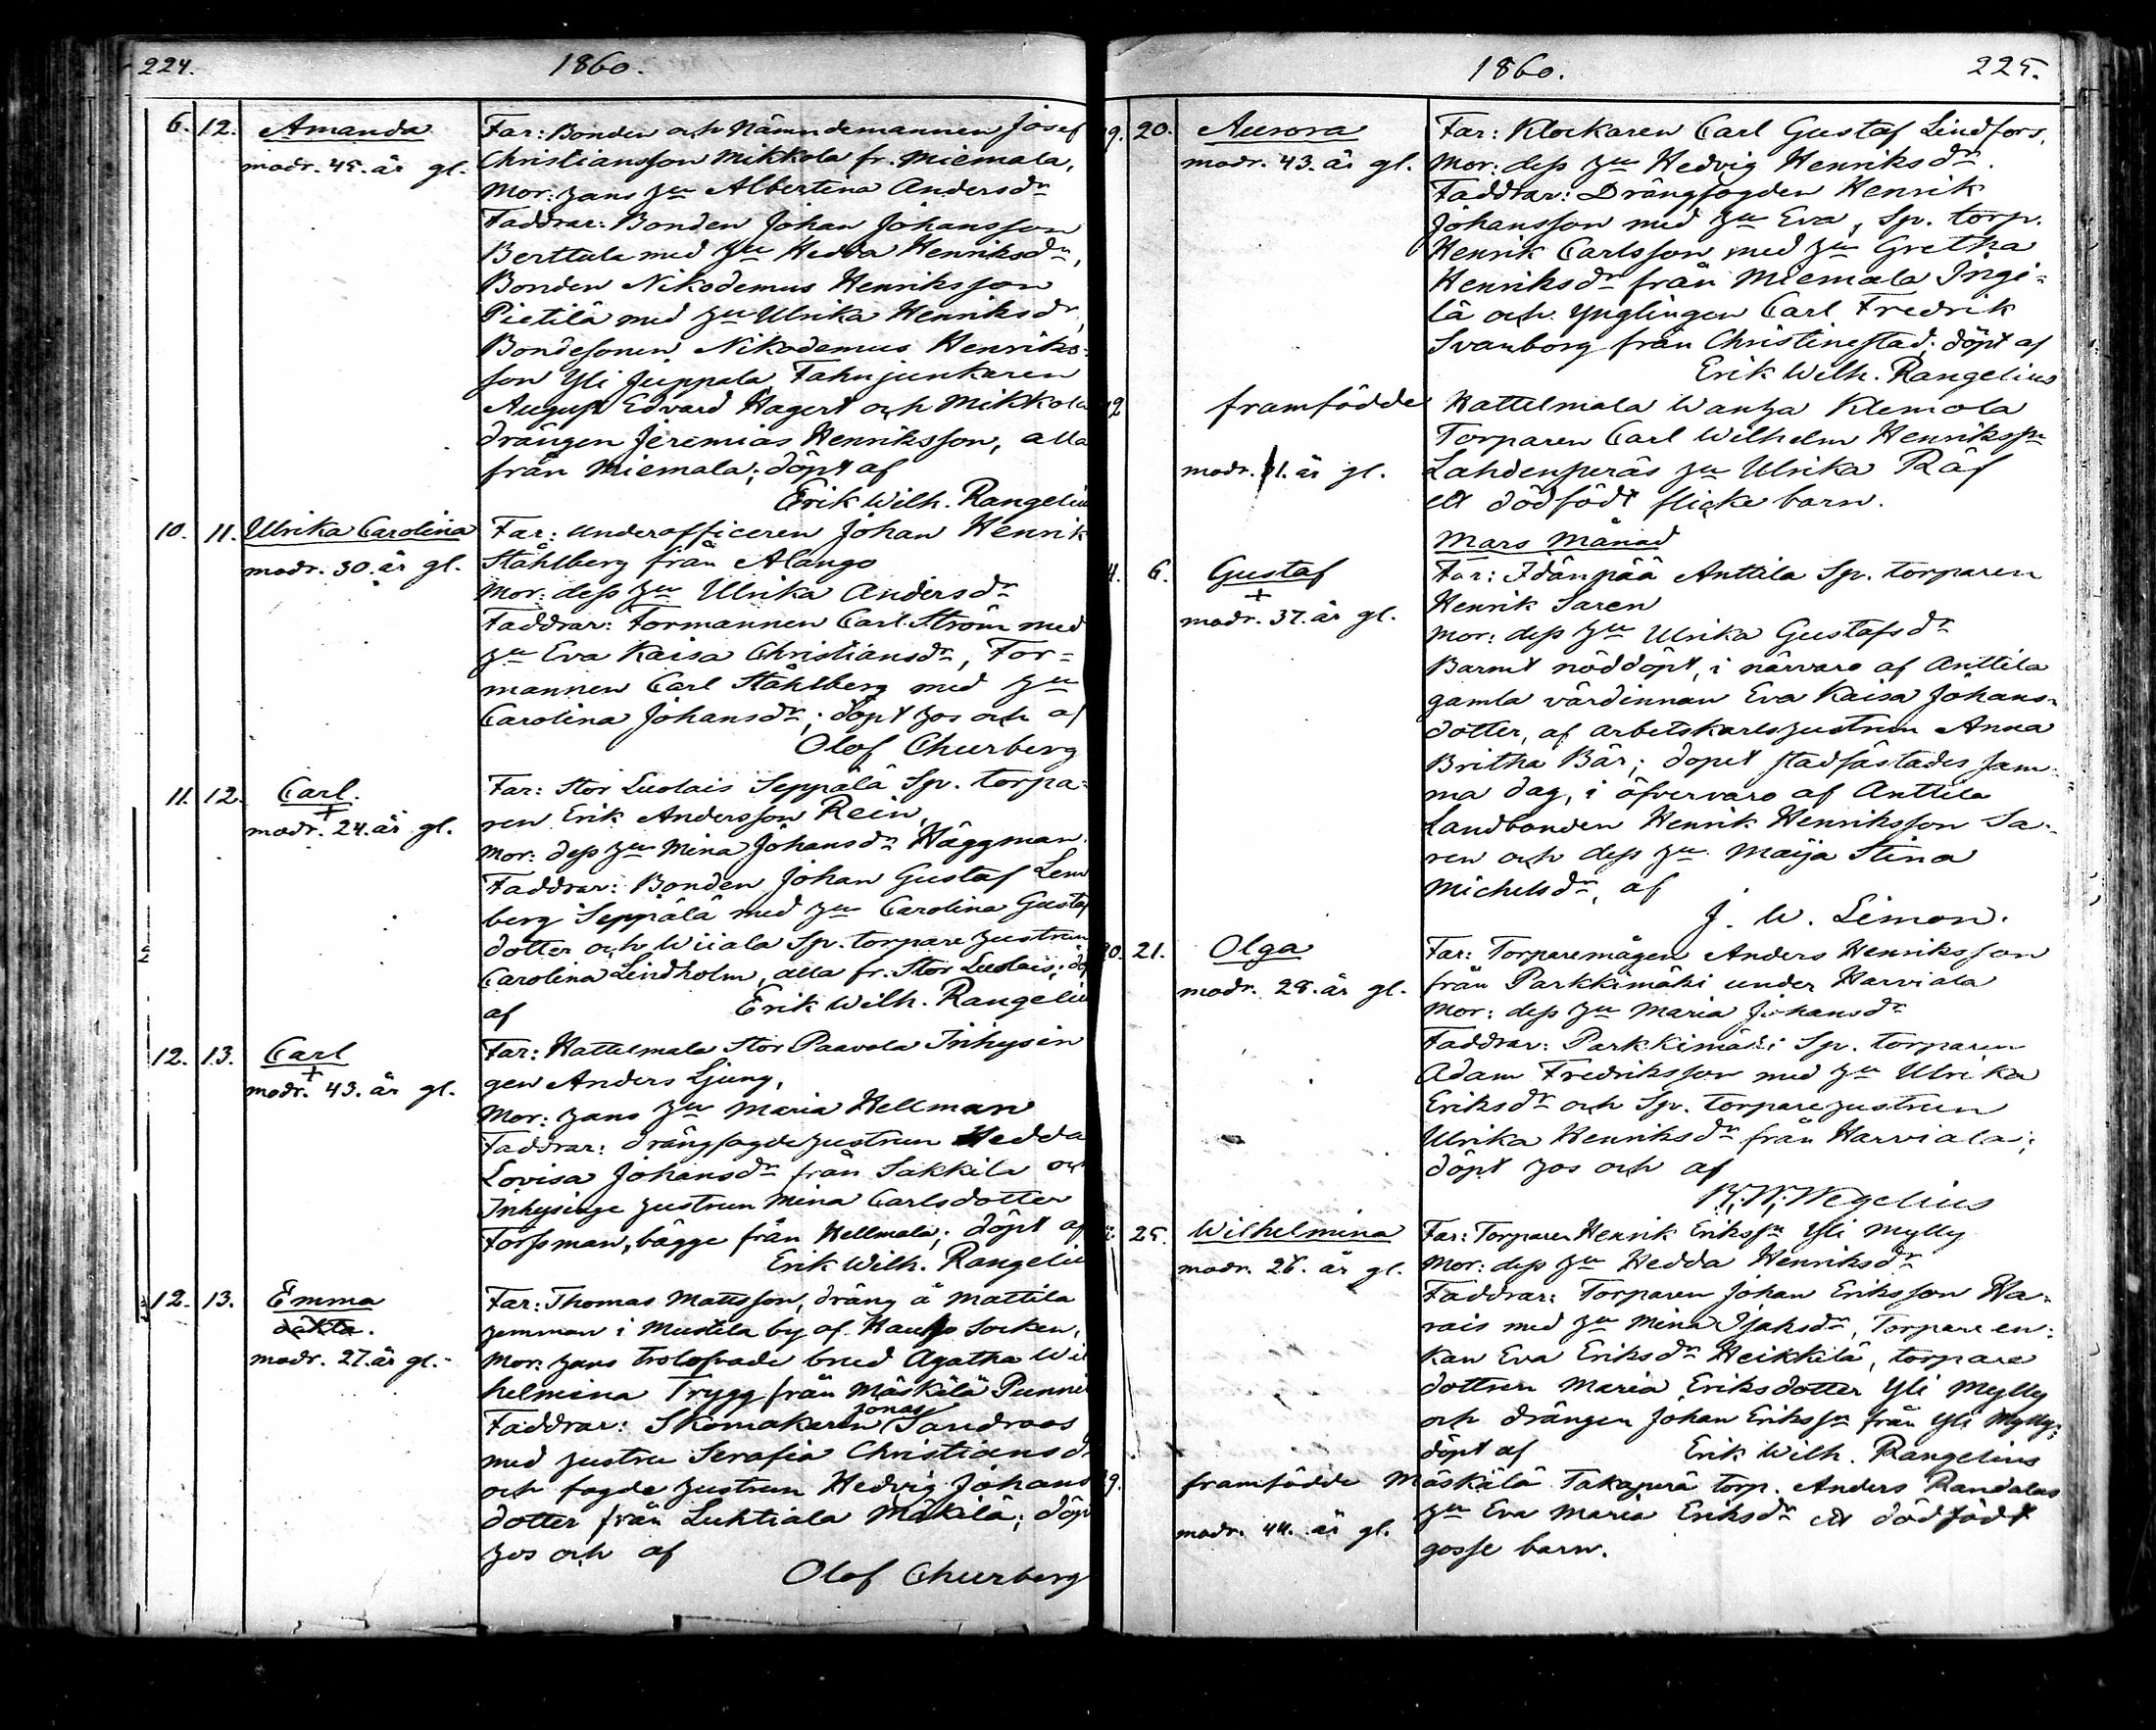 224. 1860.
6. 12. Amanda Far: Bonden och Nämndemannen Josef
modr. 45. år gl. Christiansson Mikkola fr. Miemala,
Mor: hans hu Albertina Andersdr
Faddrar: Bonden Johan Johansson
Berttula med hu Hedda Henriksdr,
Bonden Nikodemus Henriksson
Pietilä med hu Ulrika Henriksdr,
Bondesonen Nikodemus Henriks-
son Yli Juppala, Fahnjunkaren
August Edvard Hagert och Mikkola
drängen Jeremias Henriksson, alla
från Miemala; döpt af
Erik Wilh. Rangeliu
10. 11. Ulrika Carolina Far: Underofficeren Johan Henrik
modr. 30. år gl. Ståhlberg från Alango
Mor: dess hu Ulrika Andersdr
Faddrar: Formannen Carl Ström med
hu Eva Kaisa Christiansdr, For=
mannen Carl Ståhlberg med hu
Carolina Johansdr; döpt hos och af
Olof Churberg
11. 12. Carl. Far: Stor Luolais Seppälä Sp. torpa=
+
modr. 24. år gl. ren Erik Andersson Rein,
Mor: dess hu Mina Johansdr Häggman.
Faddrar: Bonden Johan Gustaf Lem
berg Seppälä med hu Carolina Gustaf
dotter och Wiiala Sp. torpare hustrun
Carolina Lindholm, alla fr. Stor Luolais; döp
af Erik Wilh. Rangeliu
12. 13. Carl Far: Hattelmala Stor Paavola Inhysin
+
modr. 43. år gl. gen Anders Ljung,
Mor: hans hu Maria Hellman
Faddrar: drängfogdehustrun Hedda
Lovisa Johansdr från Sakkila och
Inhysinge hustrun Mina Carlsdotter
Forssman, bägge från Hellmala; döpt af
Erik Wilh. Rangeliu
12. 13. Emma Far: Thomas Mattsson, dräng å Mattila
oäkta. hemman i Mustila by af Hauho Socken,
modr. 27. år gl. Mor: hans trolofvade brud Agatha Wil
helmina Trygg från Mäskälä Punni
Faddrar: Skomakaren Jonas Sandroos
med hustru Serafia Christiansdr
och fogde hustrun Hedvig Johans
dotter från Luhtiala Mäkilä; döpt
hos och af
Olof Churberg
1860. 225.
19. 20. Aurora Far: Klockaren Carl Gustaf Lindfors,
modr. 43. år gl. Mor: dess hu Hedvig Henriksdr.
Faddrar: Drängfogden Henrik
Johansson med hu Eva, Sp. torp.
Henrik Carlsson med hu Gretha
Henriksdr från Miemala Ingi=
lä och ynglingen Carl Fredrik
Svanborg från Christinestad; döpt af
Erik Wilh. Rangelius
framfödde Hattelmala Wanha Klemola
Torparen Carl Wilhelm Henrikssn
modr. 1. år gl. Lahdenperäs hu Ulrika Räf
ett dödfödt flicke barn.
Mars Månad
4. 6. Gustaf Far: Idänpää Anttila Sp. torparen
+
modr. 37. år gl. Henrik Saren
Mor: dess hu Ulrika Gustafsdr
Barnet nöddöpt, i närvaro af Anttila
gamla värdinnan Eva Kaisa Johans-
dotter, af arbetskarlshustrun Anna
Britha Bär; dopet stadfästades sam-
ma dag, i öfvervaro af Anttila
Landbonden Henrik Henriksson Sa-
ren och dess hu Maija Stina
Michelsdr, af
J. W. Limon.
20. 21. Olga Far: Torparemågen Anders Henriksson
modr. 28. år gl. från Parkkimäki under Harviala
Mor: dess hu Maria Johansdr
Faddrar: Parkkimäki Sp. torparen
Adam Fredriksson med hu Ulrika
Eriksdr och Sp. torpare hustrun
Ulrika Henriksdr från Harviala;
döpt hos och af
Wegelius
25. Wilhelmina Far: Torparen Henrik Erikssn Yli Mylly
modr. 26. år gl. Mor: dess hu Hedda Henriksdr
Faddrar: Torparen Johan Eriksson Ha-
rais med hu Mina Isaksdr, Torpare en-
kan Eva Eriksdr Heikkilä, torpare
dottren Maria Eriksdotter Yli Mylly
och drängen Johan Erikssn från Yli Mylly;
döpt af Erik Wilh. Rangelius
29. framfödde Mäskälä Takaperä torp. Anders Randalas
modr. 44. år gl. hu Eva Maria Eriksdr ett dödfödt
gosse barn.